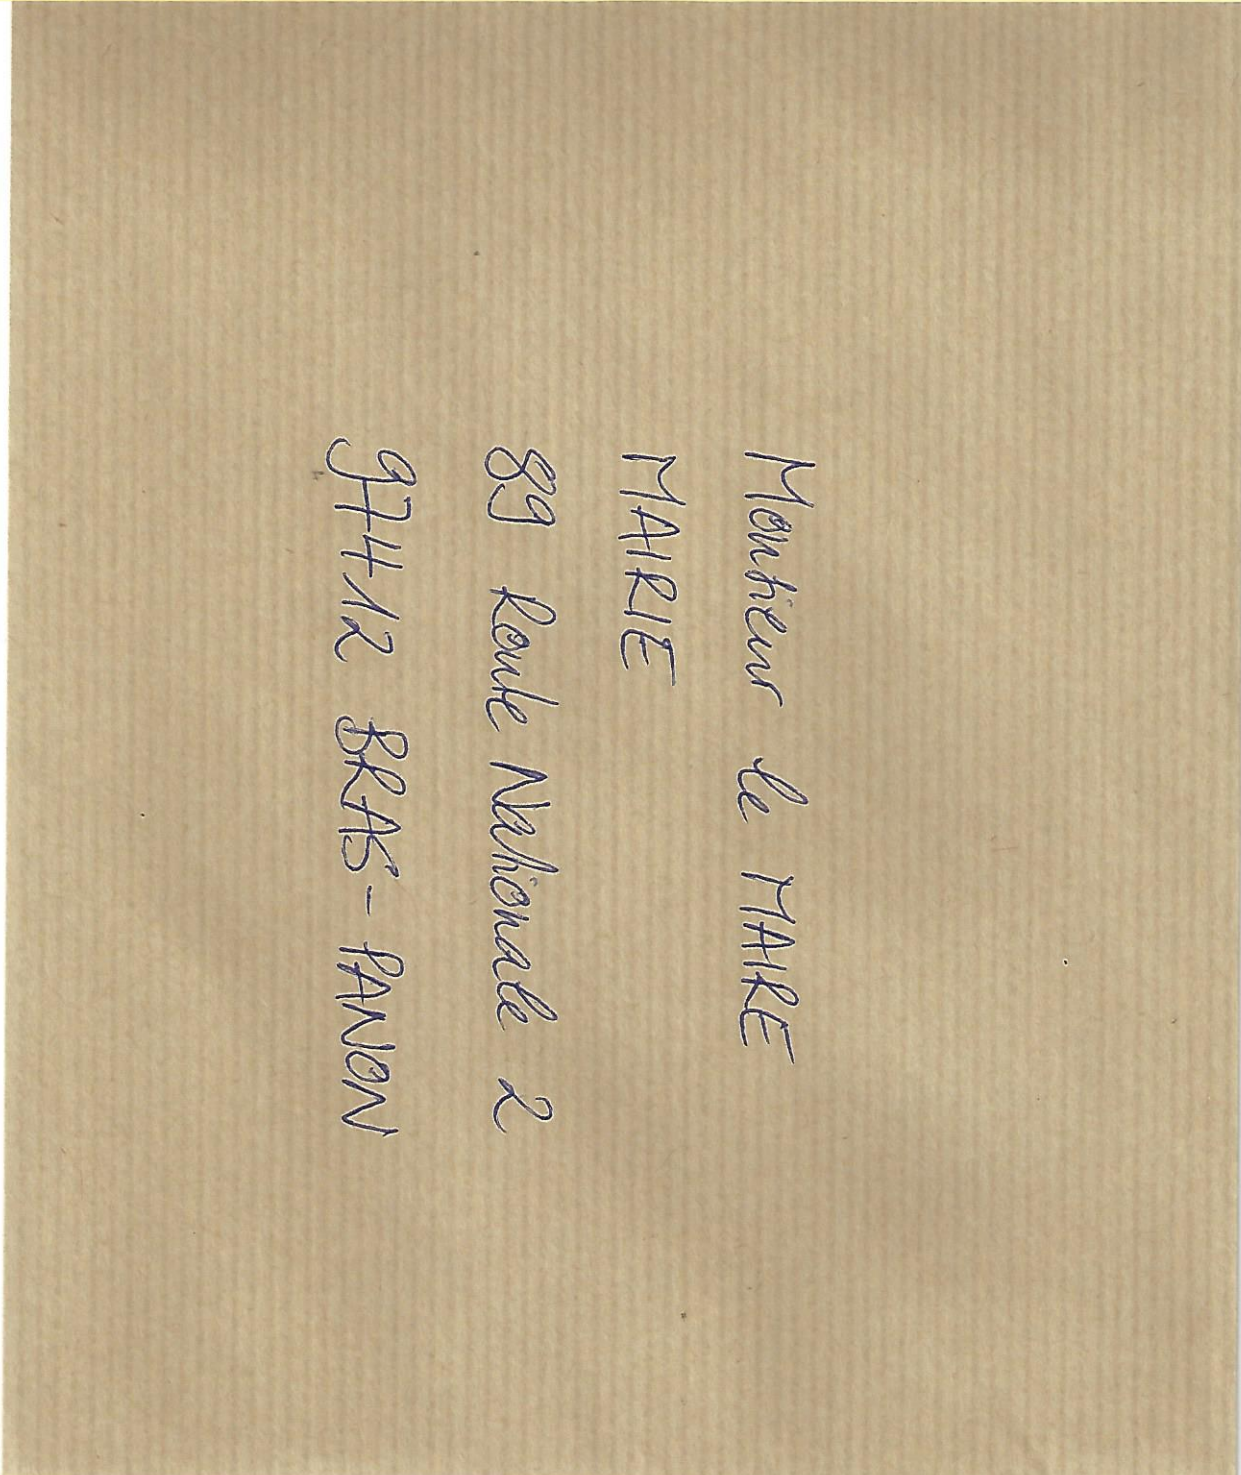 Monsieur le MAIRE
MAIRIE
89 Route Nationale 2
97412 BRAS-PANON